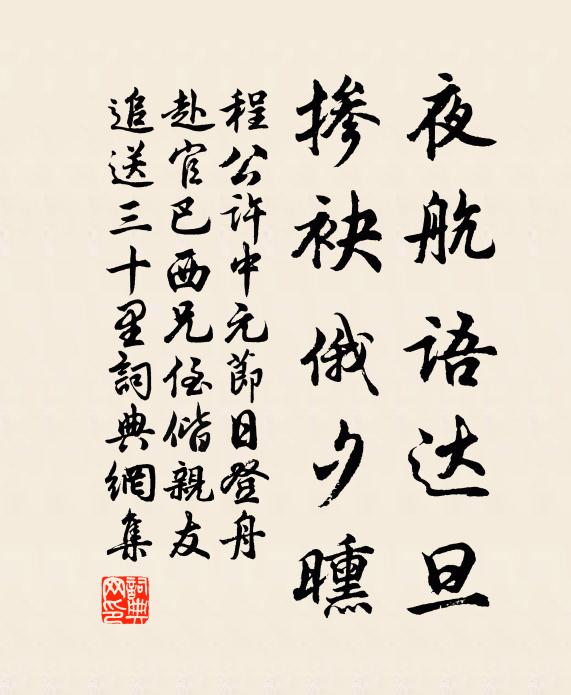 夜航语达旦
掺袂俄夕曛
程公许中元節日登舟
赴官巴西兄侄偕親友
追送三十里詞典網集
詞典網印